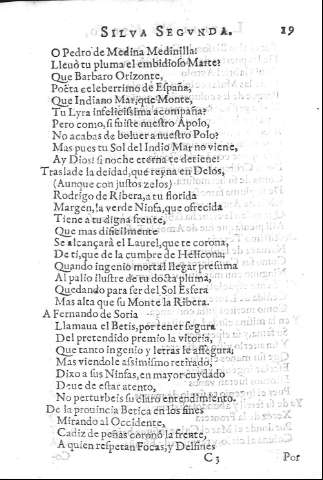 SILVA SEGVNDA. 19
O Pedro de Medina Medinilla!
Lleuò tu pluma el embidioso Marte?
Que Barbaro Orizonte,
Poeta celeberrimo de España,
Que Indiano Mar, que Monte,
Tu Lyra infelicissima acompaña?
Pero como, si fuiste nuestro Apolo,
No acabas de boluer a nuestro Polo?
Mas pues tu Sol del Indio Mar no viene,
Ay Dios! si noche eterna te detiene!
Traslade la deidad, que reyna en Delos,
(Aunque con justos zelos)
Rodrigo de Ribera, a tu florida
Margen, la verde Ninfa, que ofrecida
Tiene a tu digna frente,
Que mas dificilmente
Se alcançarà el Laurel, que te corona,
De ti, que de la cumbre de Helicona;
Quando ingenio mortal llegar presuma
Al palio ilustre de tu docta pluma,
Quedando para ser del Sol Esfera
Mas alta que su Monte la Ribera.
A Fernando de Soria
Llamaua el Betis, por tener segura
Del pretendido premio la vitoria,
Que tanto ingenio y letras le assegura;
Mas viendole assimismo retirado,
Dixo a sus Ninfas, en mayor cuydado
Deue de estar atento,
No perturbeis su claro entendimiento.
De la prouincia Betica en los fines
Mirando al Occidente,
Cadiz de peñas coronò la frente,
A quien respetan Focas, y Delfines
C 3 Por